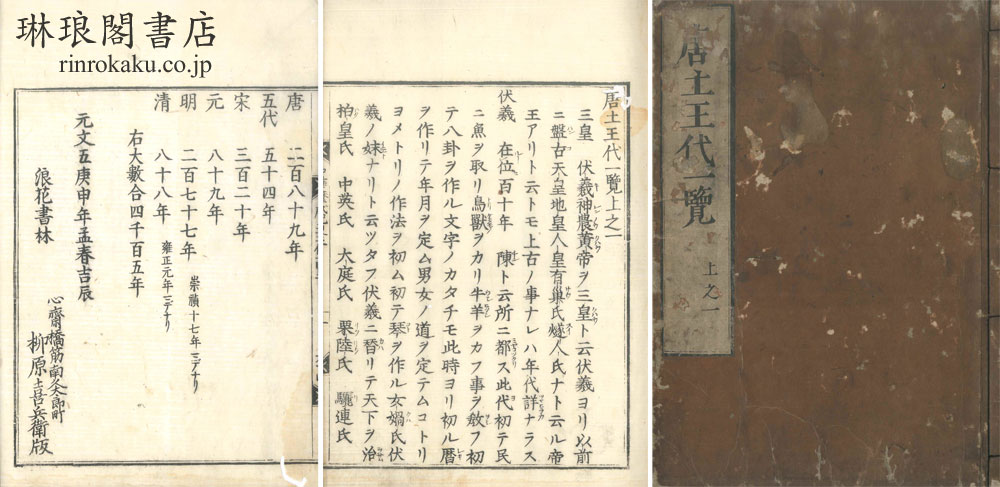 琳琅閣書店
rinrokaku.co.jp
唐土王代一覽
上之一
唐土王代一覽上之一
三皇　伏羲神農黄帝ヲ三皇ト云伏羲ヨリ以前
ニ盤古天皇地皇人皇有巢氏燧人氏ナト云ル帝
王アリト云トモ上古ノ事ナレハ年代詳ナラス
伏羲　在位百十年　陳ト云所ニ都ス此代初テ民
ニ魚ヲ取リ鳥獸ヲカリ牛羊ヲカフ事ヲ敎フ初
テ八卦ヲ作ル文字ノカタチモ此時ヨリ初ル暦
ヲ作リテ年月ヲ定ム男女ノ道ヲ定テムコトリ
ヨメトリノ作法ヲ初ム初テ琴ヲ作ル女媧氏伏
羲ノ妹ナリト云ツタフ伏羲ニ替リテ天下ヲ治
柏皇氏　中英氏　大庭氏　栗陸氏　驪連氏
唐　二百八十九年
五代　五十四年
宋　三百二十年
元　八十九年
明　二百七十七年　崇禎十七年ニテナリ
清　八十八年　雍正元年ニテナリ
右大數合四千百五年
元文五庚申年孟春吉辰
浪花書林
心齋橋筋南久太郎町
柳原喜兵衛版